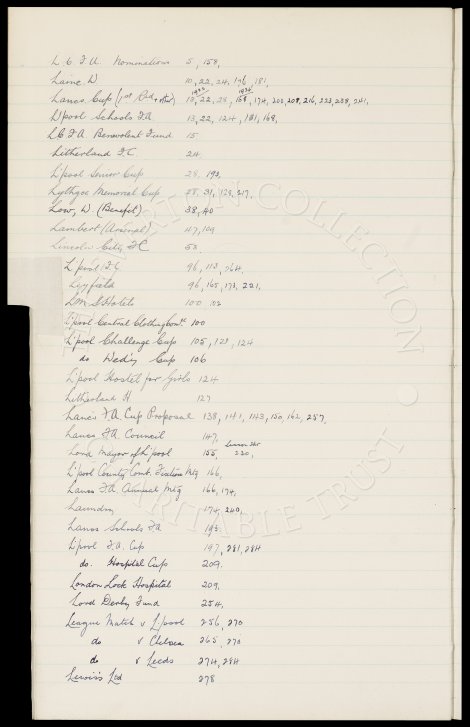 L.C.F.A. Nominations 5, 158,
Laine, W 10, 22, 24, 176, 181,
Lancs. Cup (1st Rd, etc) 18, 22, 28, 158, 174, 200, 208, 216, 223, 238, 241,
L'pool Schools F.A. 13, 22, 124, 181, 168,
L.C.F.A. Benevolent Fund 15
Litherland F.C. 24
L'pool Senior Cup 28, 192,
Lythgoe Memorial Cup 28, 31, 129, 217,
Low, W. (Benefit) 38, 40
Lambert (Arsenal), 47, 109
Lincoln City F.C 58
L'pool F.C. 96, 113, 264,
Leyfield 96, 165, 173, 221,
L.M.S Hotels 100
L'pool Central Clothing Comt. 100
L'pool Challenge Cup 105, 123, 124
do Wed'y Cup 106
L'pool Hostel for Girls 124
Litherland H 127
Lancs FA Cup Proposal 138, 141, 143, 150, 162, 257,
Lancs. F.A. Council 147,
Lord Mayor of L'pool 155, 230,
L'pool County Comb. Fixture Mtg 166,
Lancs F.A. Annual Mtg 166, 174,
Laundry 174, 240,
Lancs Schools FA 193
L'pool F.A. Cup 197, 281, 284
do. Hospital Cup 209,
London Lock Hospital 209,
Lord Derby Fund 254,
League Match v L'pool 256, 270
do v Chelsea 265, 270
do v Leeds 274, 284
Lewis's Ltd 278
HARITABLE TRUST
COLLECTION